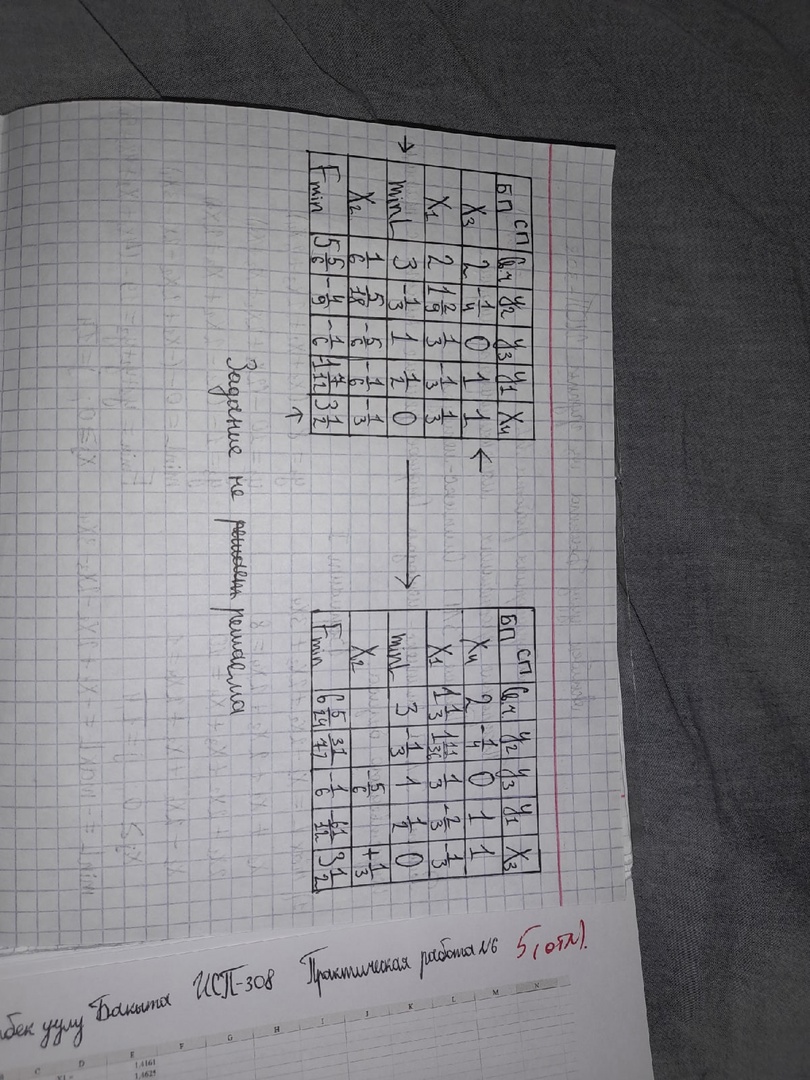 СП
БП y2 y3 y1 X4
X3 2 -1/4 0 1 1
X1 2 1 2/9 1/3 -1/3 1/3
min L 3 -1/3 1 1/2 0
X2 1/6 5/18 -5/6 -1/6 -1/3
F min 5 5/6 -4/9 -1/6 3 1/2
СП
БП y2 y3 y1 X3
X4 2 -1/4 0 1 1
X1 1 1/3 1 11/36 1/3 -2/3 -1/3
min L 3 -1/3 1 1/2 0
X2 -5/6 +1/3
F min 6 5/24 -1/6 -61/12 3 1/2
Задание не решаема
бек уулу Бакыта ИСП-308 Практическая работа №6 5 (отл).
C D E F G H I J K L M N
1.4161
1.4625